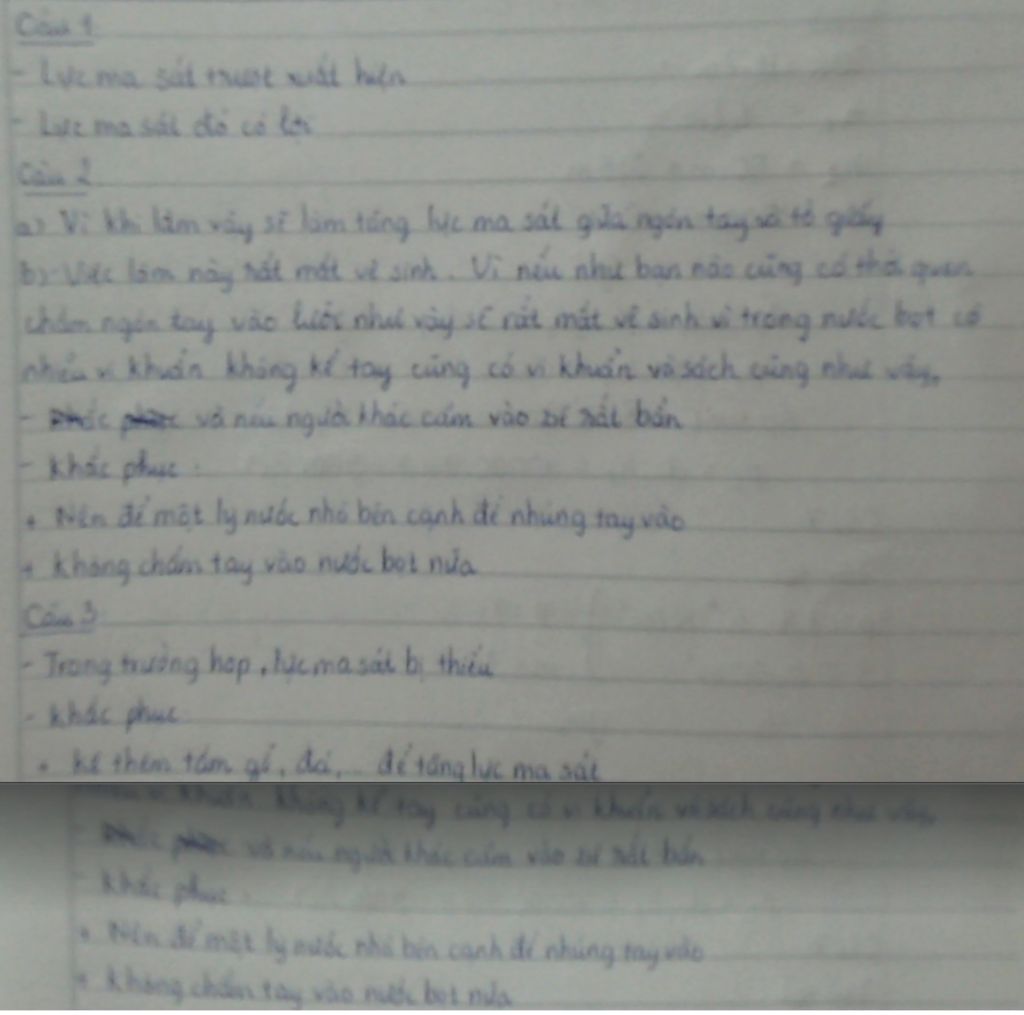 Câu 1
- Lực ma sát trượt xuất hiện
- Lực ma sát đó có lợi
Câu 2
a) Vì khi làm vậy sẽ làm tăng lực ma sát giữa ngón tay và tờ giấy
b) Việc làm này rất mất vệ sinh. Vì nếu như bạn nào cũng có thói quen
chấm ngón tay vào lưỡi như vậy sẽ rất mất vệ sinh vì trong nước bọt có
nhiều vi khuẩn không kể tay cũng có vi khuẩn và sách cũng như vậy.
- và nếu người khác cầm vào sẽ rất bẩn
- Khắc phục:
+ Nên để một ly nước nhỏ bên cạnh để nhúng tay vào
+ Không chấm tay vào nước bọt nữa
Câu 3
- Trong trường hợp, lực ma sát bị thiếu
- Khắc phục:
+ Kê thêm tấm gỗ, đá,... để tăng lực ma sát
vi khuẩn không kể tay cũng có vi khuẩn và sách cũng như vậy.
và nếu người khác cầm vào sẽ rất bẩn
- Khắc phục:
+ Nên để một ly nước nhỏ bên cạnh để nhúng tay vào
+ Không chấm tay vào nước bọt nữa